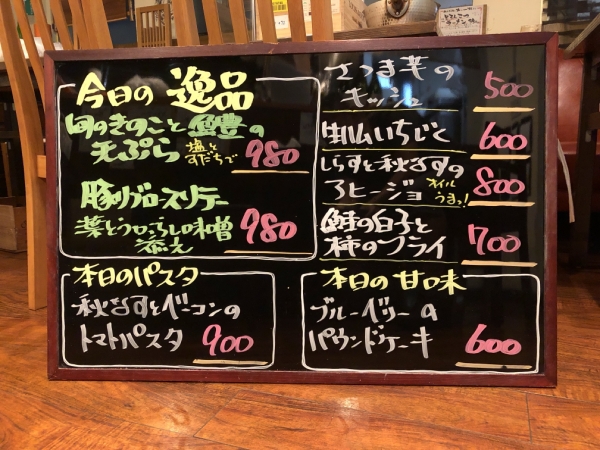 今日の 逸品
旬のきのこと 鱧の
天ぷら 塩と
すだちで 980
豚のグロースリテー
葉とうがらし味噌
添え 980
さつま芋の
キッシュ 500
生ハムいちじく 600
しらすと秋なすの
アヒージョ オイル
うまっ! 800
鮭の白子と
柿のフライ 700
本日のパスタ
秋なすとベーコンの
トマトパスタ 900
本日の甘味
ブルーベリーの
パウンドケーキ 600